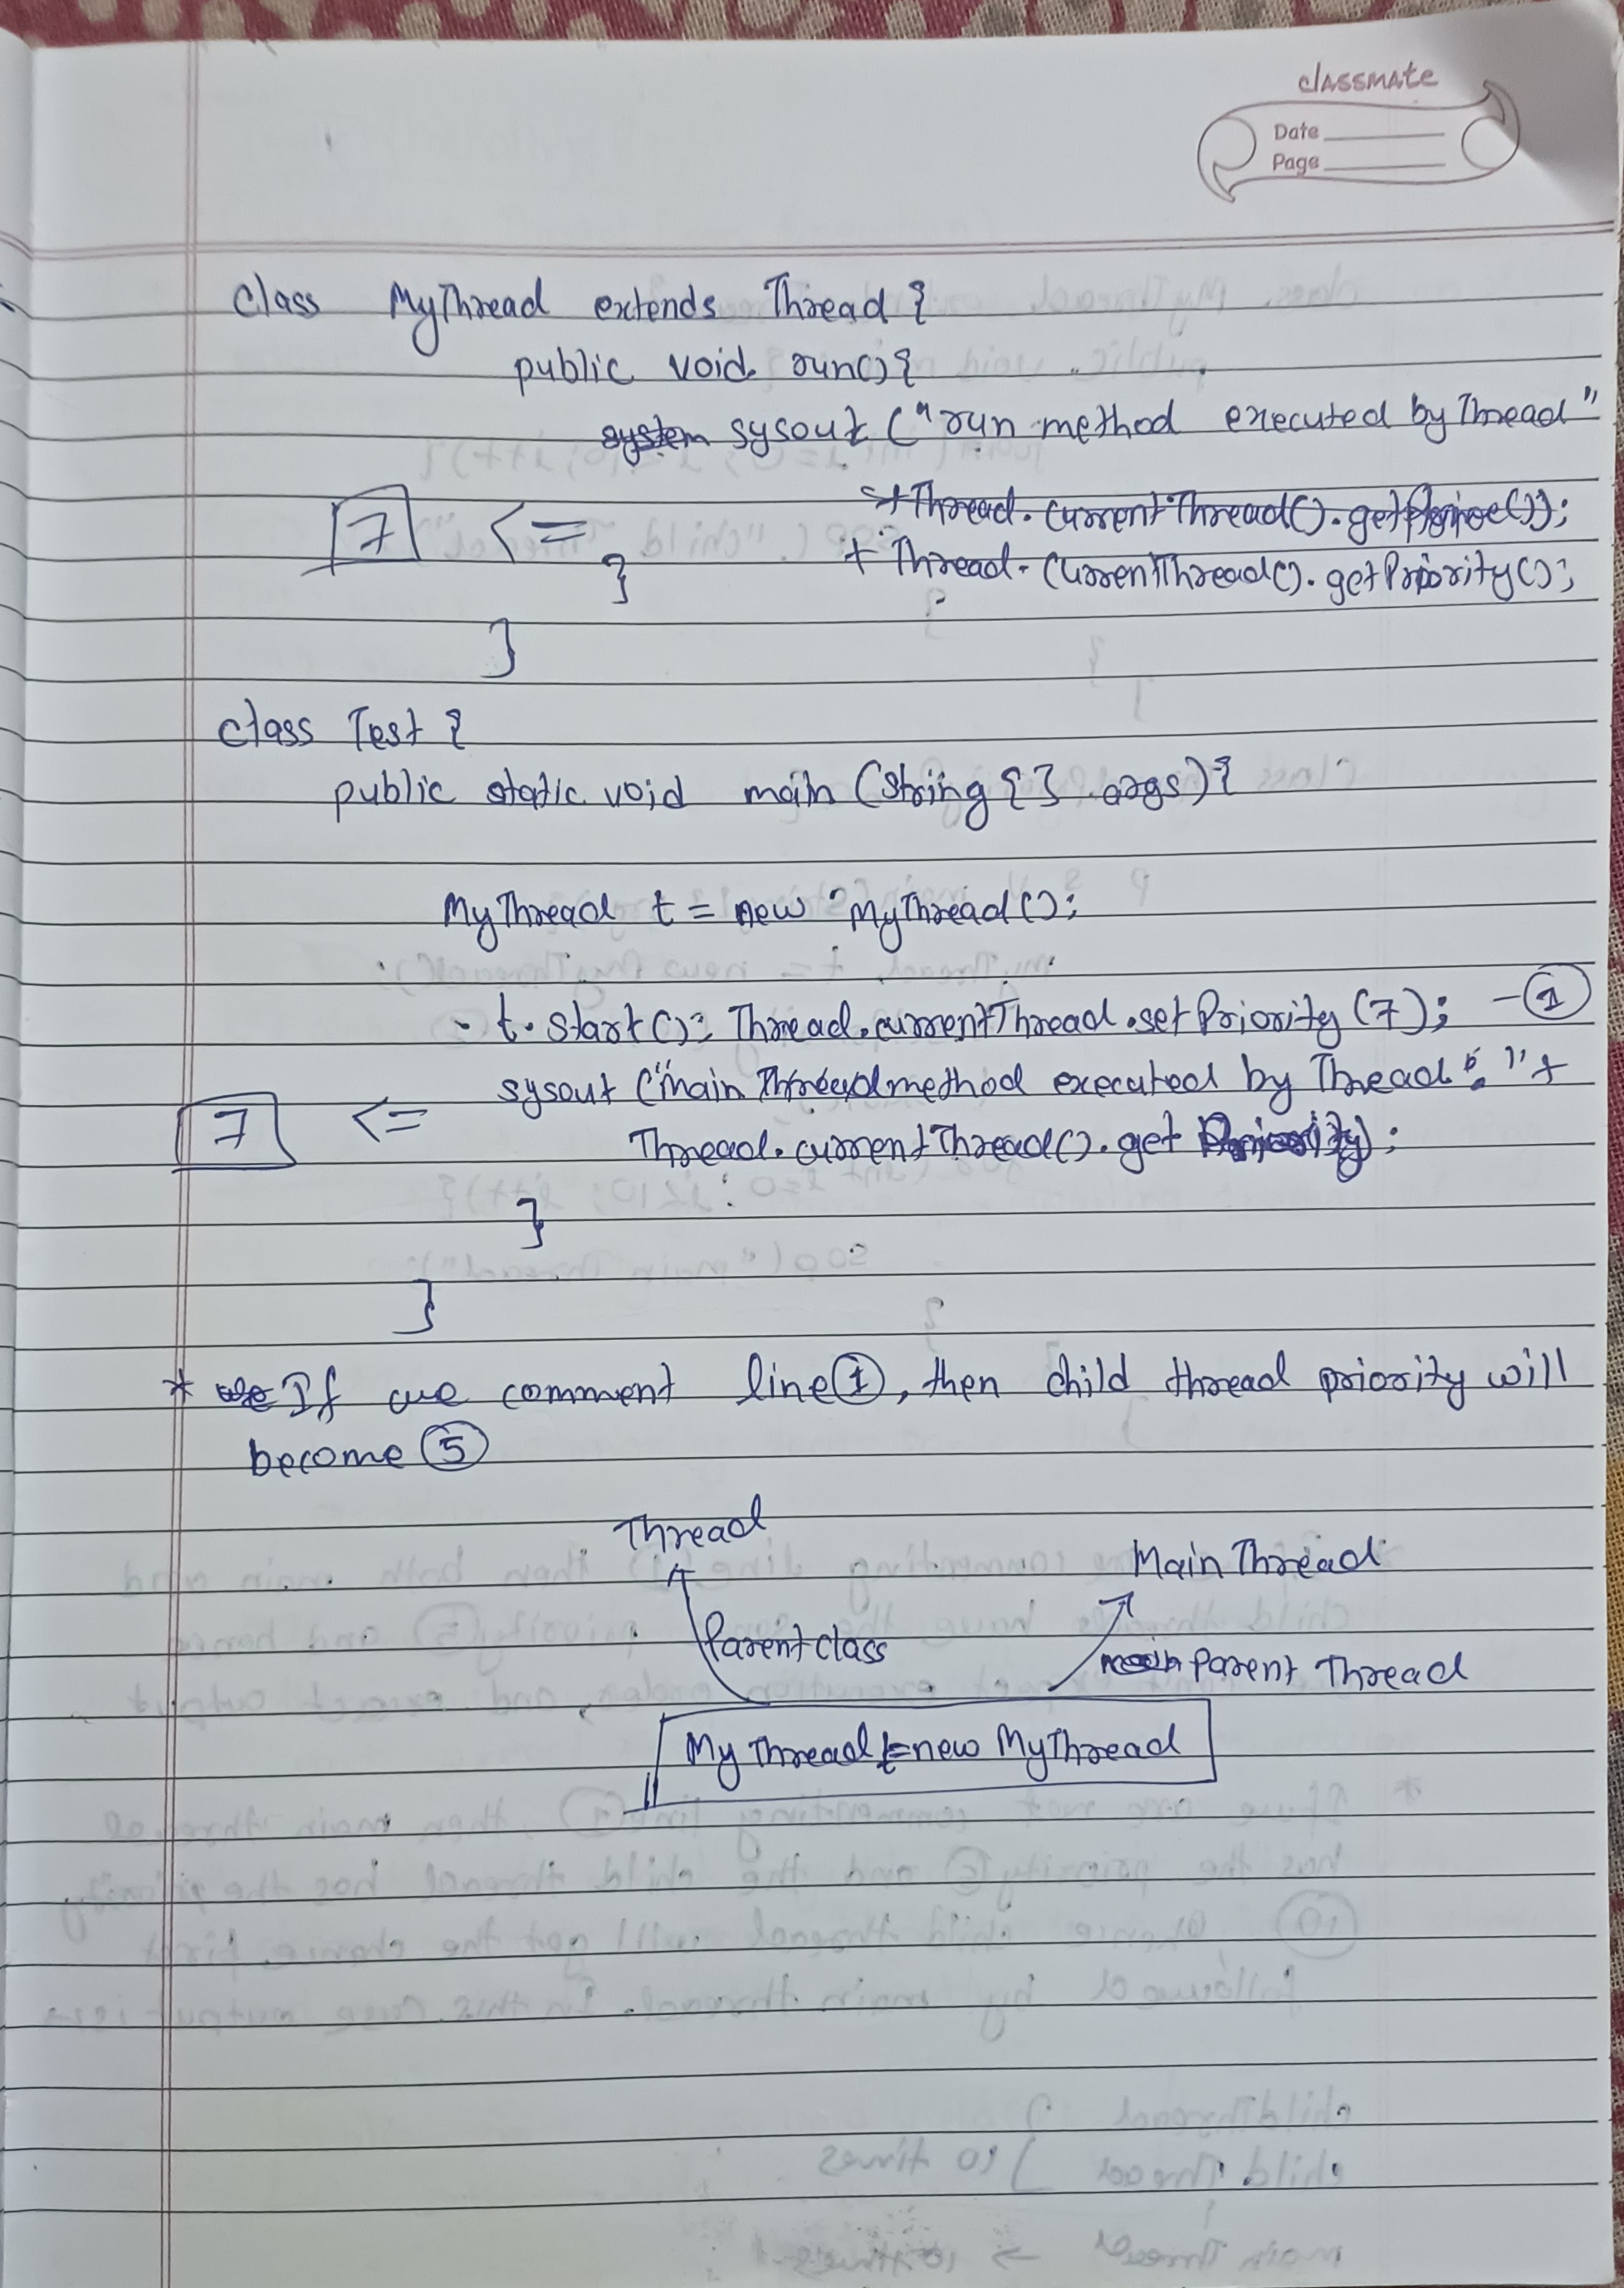 classmate
Date
Page
Class MyThread extends Thread {
public void run() {
sysout ("run method executed by Thread"
+ Thread.currentThread().getPriority();
7 <=
}
}
class Test {
public static void main (String { } args) {
MyThread t = new MyThread();
t.start(); Thread.currentThread.setPriority (7); - 1
sysout ("main method executed by Thread : " +
7 <= Thread.currentThread().get Priority);
}
}
* If we comment line 1, then child thread priority will
become 5
Thread
Main Thread
Parent class
Parent Thread
My Thread t=new MyThread